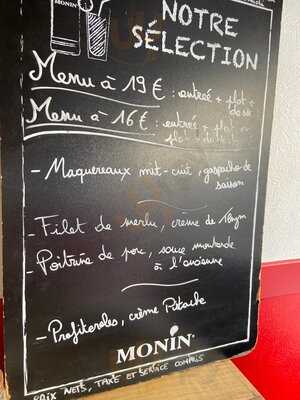 MONIN
NOTRE
SÉLECTION
Menu à 19 € : entrée + plat +
Menu à 16 € : entrée + plat
- Maquereaux mit-cuit, gaspacho de
saison
- Filet de merlu, crème de Thym
- Poitrine de porc, sauce moutarde
à l'ancienne
- Profiteroles, crème Pistache
MONIN
PRIX NETS, TAXE ET SERVICE COMPRIS